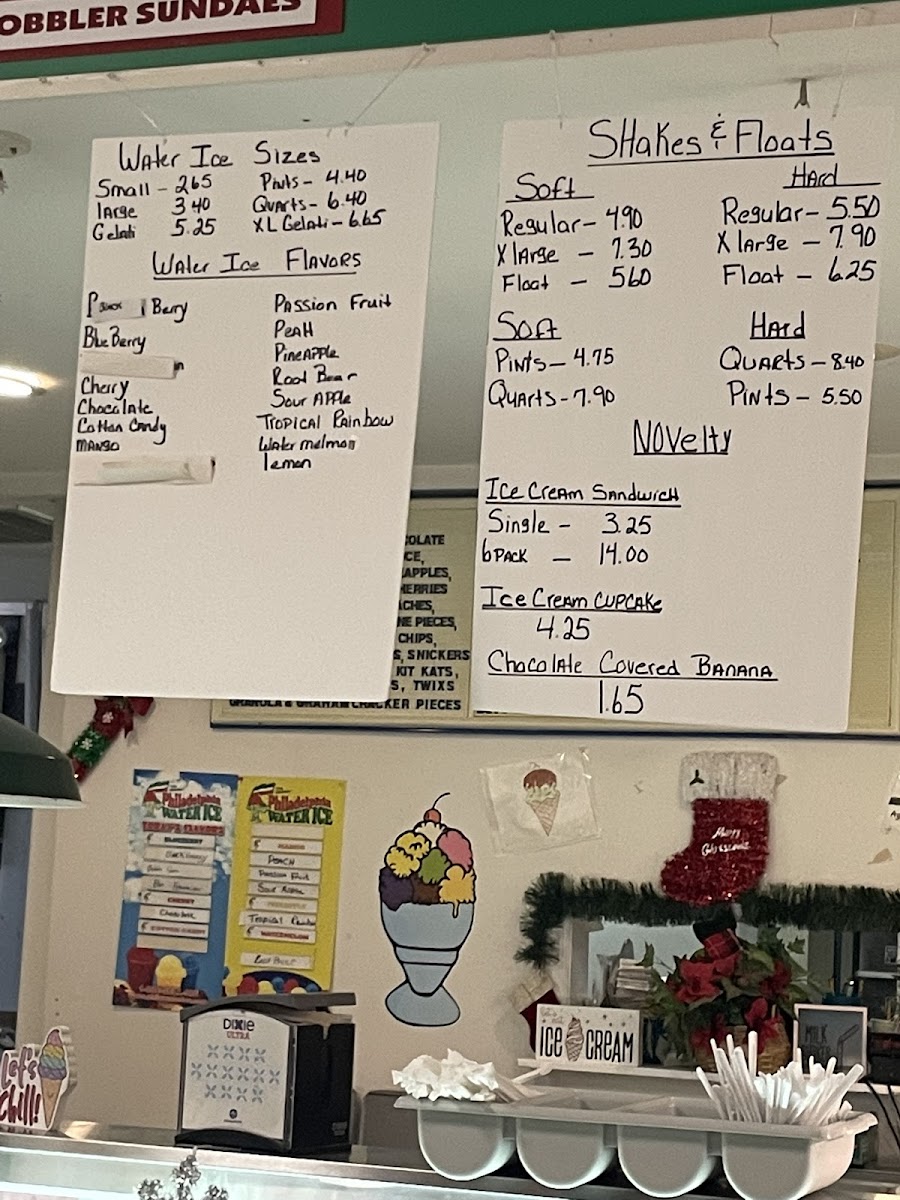 OBBLER SUNDAES
Water Ice Sizes
Small - 265
large 340
Gelati 5.25
Pints - 4.40
Quarts - 6.40
XL Gelati - 6.65
Water Ice Flavors
Berry
BlueBerry
Cherry
Chocolate
Cotton Candy
MANGO
Passion Fruit
PeaH
PineApple
Root Bear
Sour APPle
Tropical Rainbow
Water melmon
lemon
SHakes & Floats
Soft
Regular - 4.90
X lArge - 7.30
Float - 560
HArd
Regular - 5.50
X large - 7.90
Float - 6.25
Soft
Pints - 4.75
Quarts - 7.90
Hard
QUARTS - 8.40
Pints - 5.50
NOvelty
Ice Cream Sandwich
Single - 3.25
6 PACK - 14.00
Ice Cream CUPCAKe
4.25
Chocolate Covered BANANA
1.65
OLATE
CE,
APPLES,
HERRIES
ACHES,
NE PIECES,
CHIPS,
S, SNICKERS
KIT KATS,
S, TWIXS
GRANOLA & GRAHAM CRACKER PIECES
Philadelphia
WATER ICE
TODAY'S FLAVORS
BLUEBERRY
CHERRY
Chocolate
COTTON CANDY
Philadelphia
WATER ICE
MANGO
PEACH
Passion Fruit
Sour Apple
PINEAPPLE
Tropical Rainbo
WATERMELON
Merry
Christmas
let's
chill!
DIXIE
ULTRA
ICE CREAM
MILK